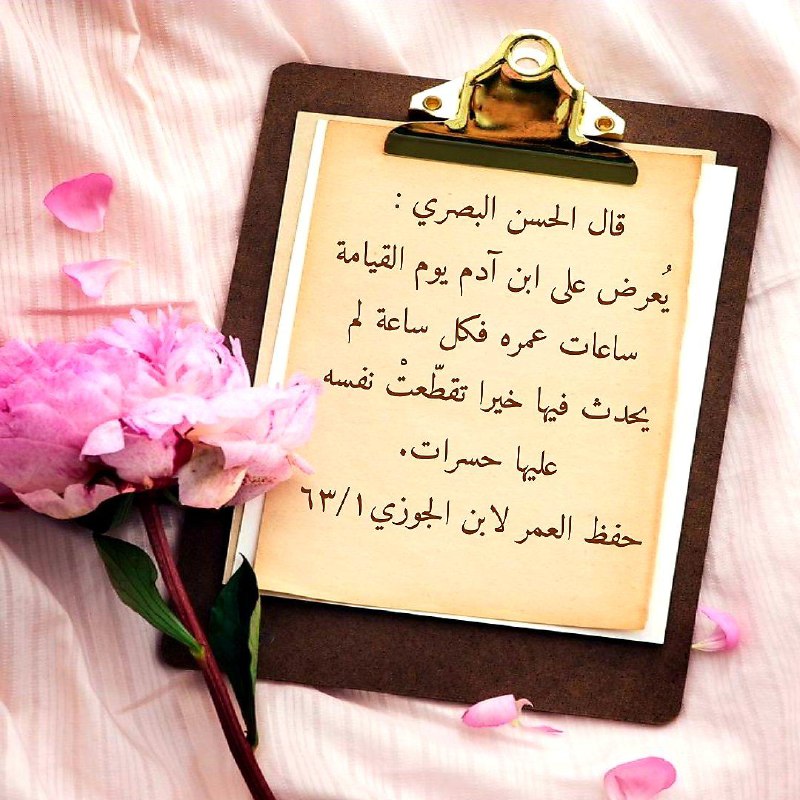 قال الحسن البصري :
يُعرض على ابن آدم يوم القيامة
ساعات عمره فكل ساعة لم
يحدث فيها خيرا تقطّعتْ نفسه
عليها حسرات.
حفظ العمر لابن الجوزي ٦٣/١